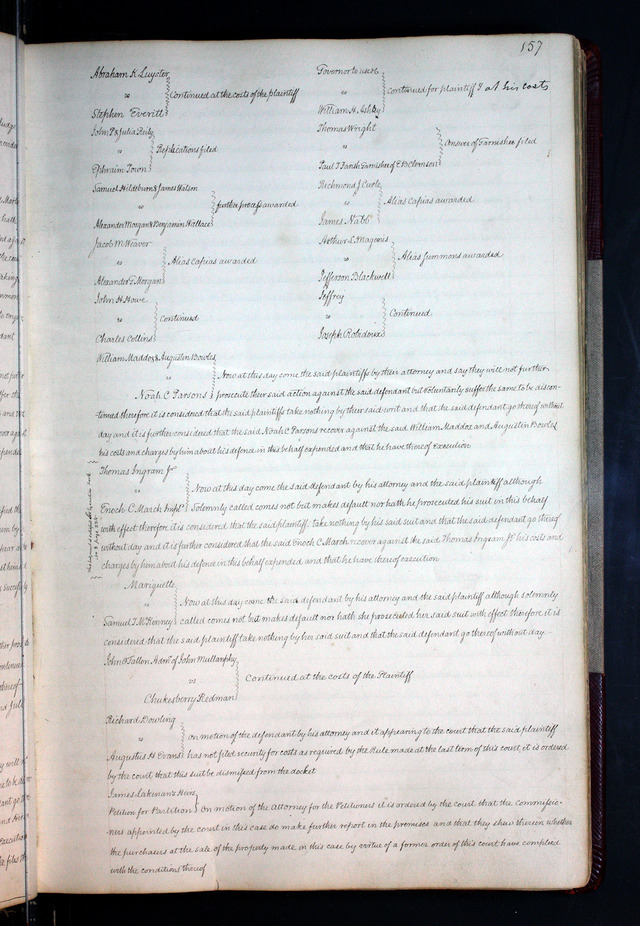 157
Abraham K Luyster
vs
Stephen Everitt
Continued at the costs of the plaintiff
John P & Julia Reily
vs
Ephraim Town
Replications filed
Samuel Hildeburn & James Watson
vs
Alexander Morgan & Benjamin Wallace
further process awarded
Jacob M Weaver
vs
Alexander T Morgan
Alias Capias awarded
John H Howe
vs
Charles Collins
Continued
Governor to use &c
vs
William H. Ashby
Continued for plaintiff & at his costs
Thomas Wright
vs
Paul T Farish Garnishee of E B Clemson
Answer of Garnishee filed
Richmond J Curle
vs
James Nabb
Alias Capias awarded
Arthur L Magenis
vs
Jefferson Blackwell
Alias Summons awarded
Jeffrey
vs
Joseph Robidoux
Continued
William Maddox & Augustin Bowles
vs
Noah C Parsons
Now at this day come the said plaintiffs by their attorney and say they will not further
prosecute their said action against the said defendant but voluntarily suffer the same to be discon-
tinued therefore it is considered that the said plaintiffs take nothing by their said writ and that the said defendant go thereof without
day and it is further considered that the said Noah C Parsons recover against the said William Maddox and Augustin Bowles
his costs and charges by him about his defence in this behalf expended and that he have thereof execution
Thomas Ingram Jr
vs
Enoch C March Impl
Now at this day come the said defendant by his attorney and the said plaintiff although
Solemnly called comes not but makes default nor hath he prosecuted his suit in this behalf
with effect therefore it is considered that the said plaintiff take nothing by his said suit and that the said defendant go thereof
without day and it is further considered that the said Enoch C March recover against the said Thomas Ingram Jr his costs and
charges by him about his defence in this behalf expended and that he have thereof execution
Mariguette
vs
Samuel T McKenney
Now at this day come the said defendant by his attorney and the said plaintiff although solemnly
called comes not but makes default nor hath she prosecuted her said suit with effect therefore it is
considered that the said plaintiff take nothing by her said suit and that the said defendant go thereof without day
John O'Fallon Admr of John Mullanphy
vs
Chukesberry Redman
Continued at the costs of the Plaintiff
Richard Dowling
vs
Augustus H Evans
On motion of the defendant by his attorney and it appearing to the court that the said plaintiff
has not filed security for costs as required by the Rule made at the last term of this court, it is ordered
by the court that this suit be dismissed from the docket
James Lakenan's Heirs
Petition for Partition
On motion of the Attorney for the Petitioners it is ordered by the court that the Commissio-
ners appointed by the court in this case do make further report in the premises and that they shew therein whether
the purchasers at the sale of the property made in this case by virtue of a former order of this court have complied
with the conditions thereof